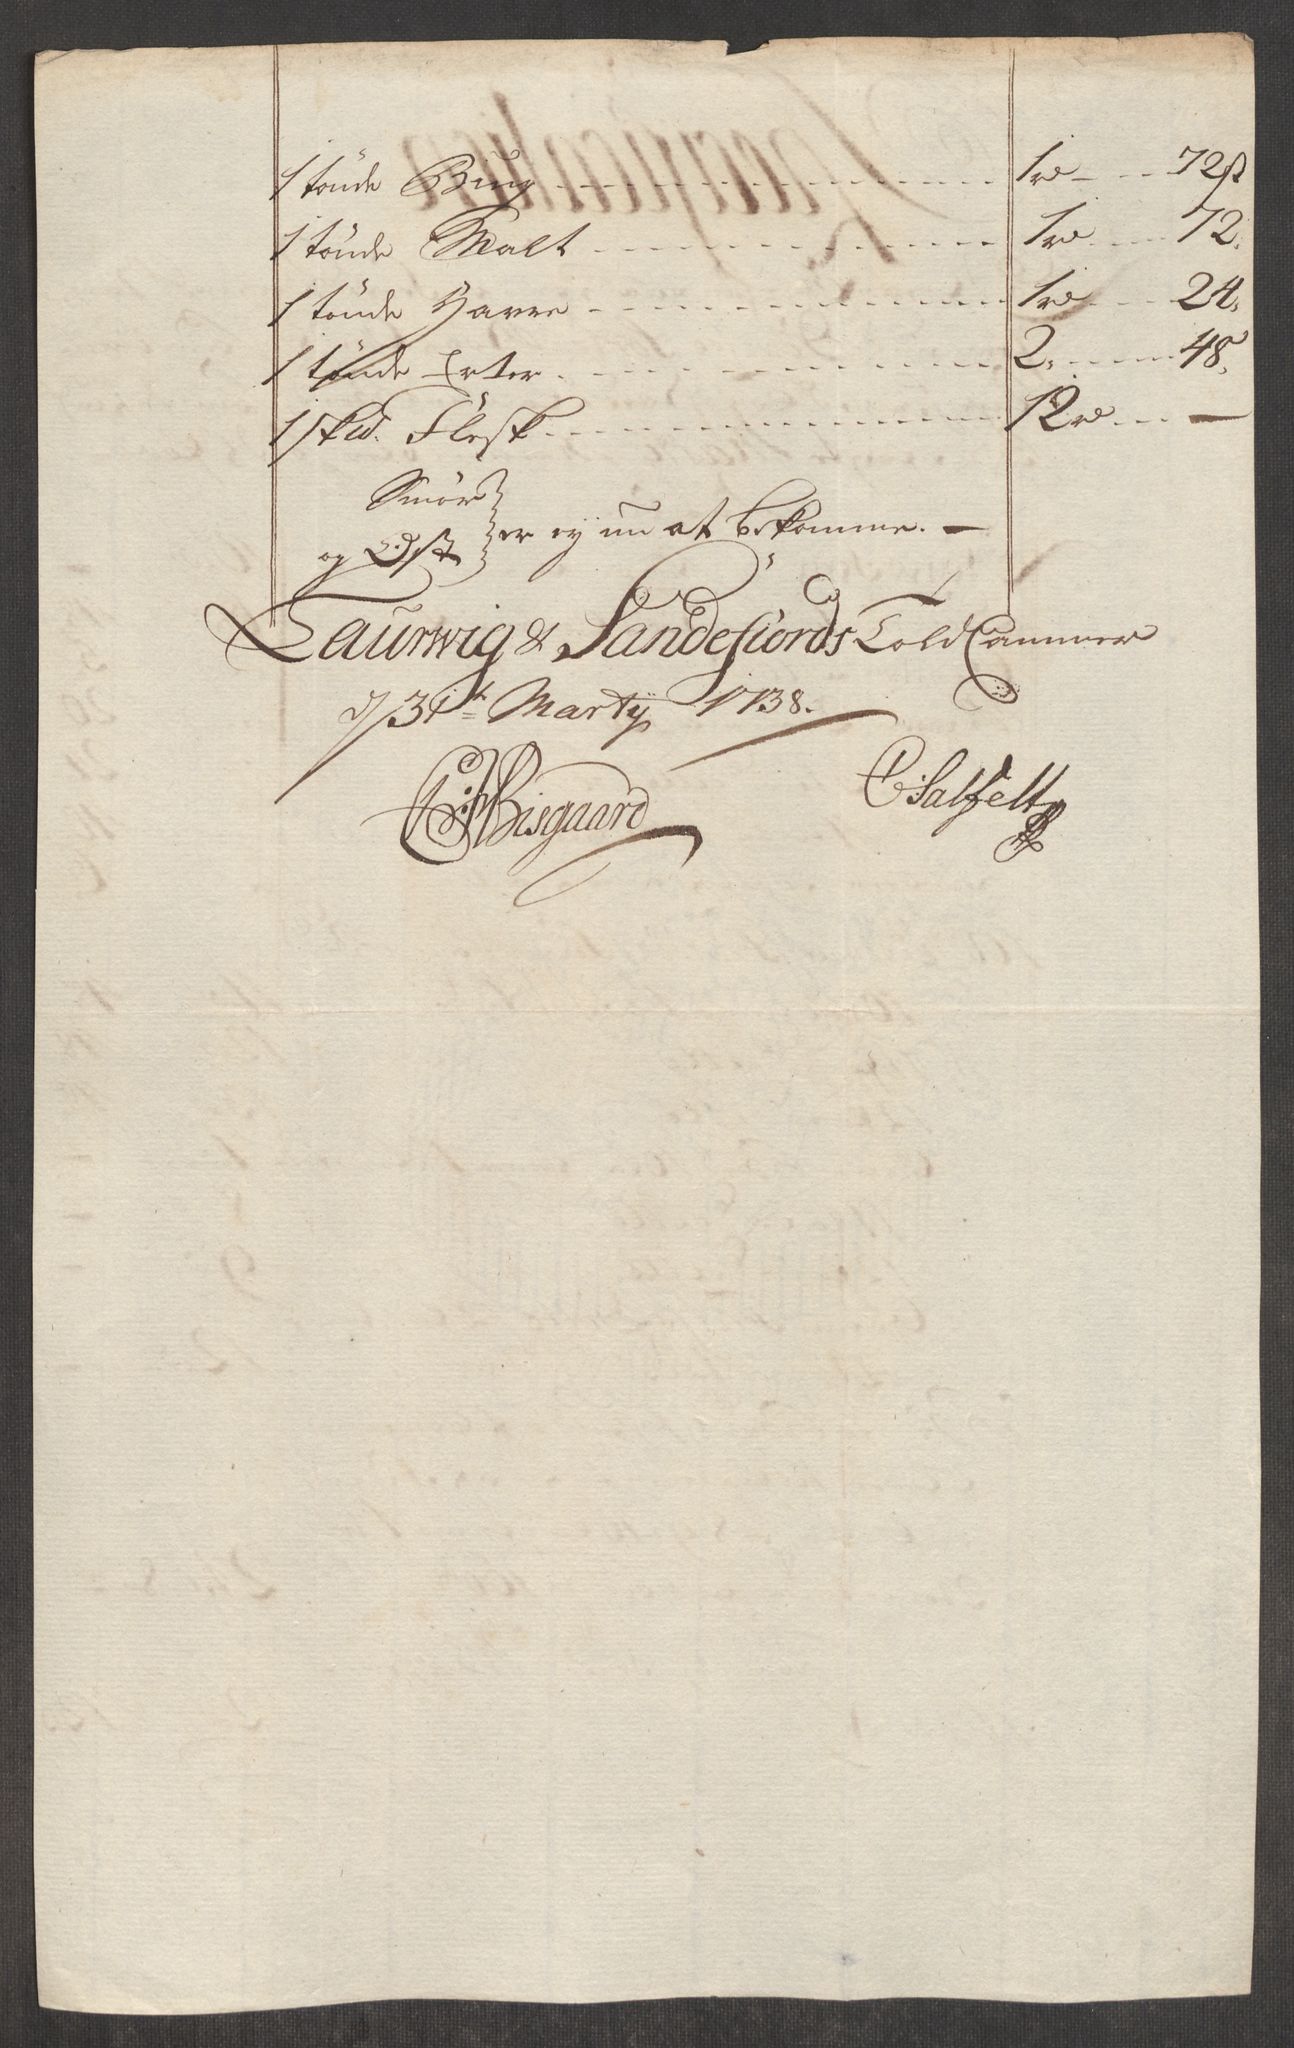 1 tönde Bÿng - - - 1 rd - - 72 ß
1 tönde Malt - - - 1 rd - - 72.
1 tönde Havre - - - 1 rd - - 24.
1 tönde Erter - - - 2. - - 48.
1 skid. Flesk - - - 12 rd - - —
Smör
og Ost } er ey nu at bekomme. —
Laurwig & Sandefiords Told Cammer
d/ 31te Martij 1738.
Bisgaard CSalfelt